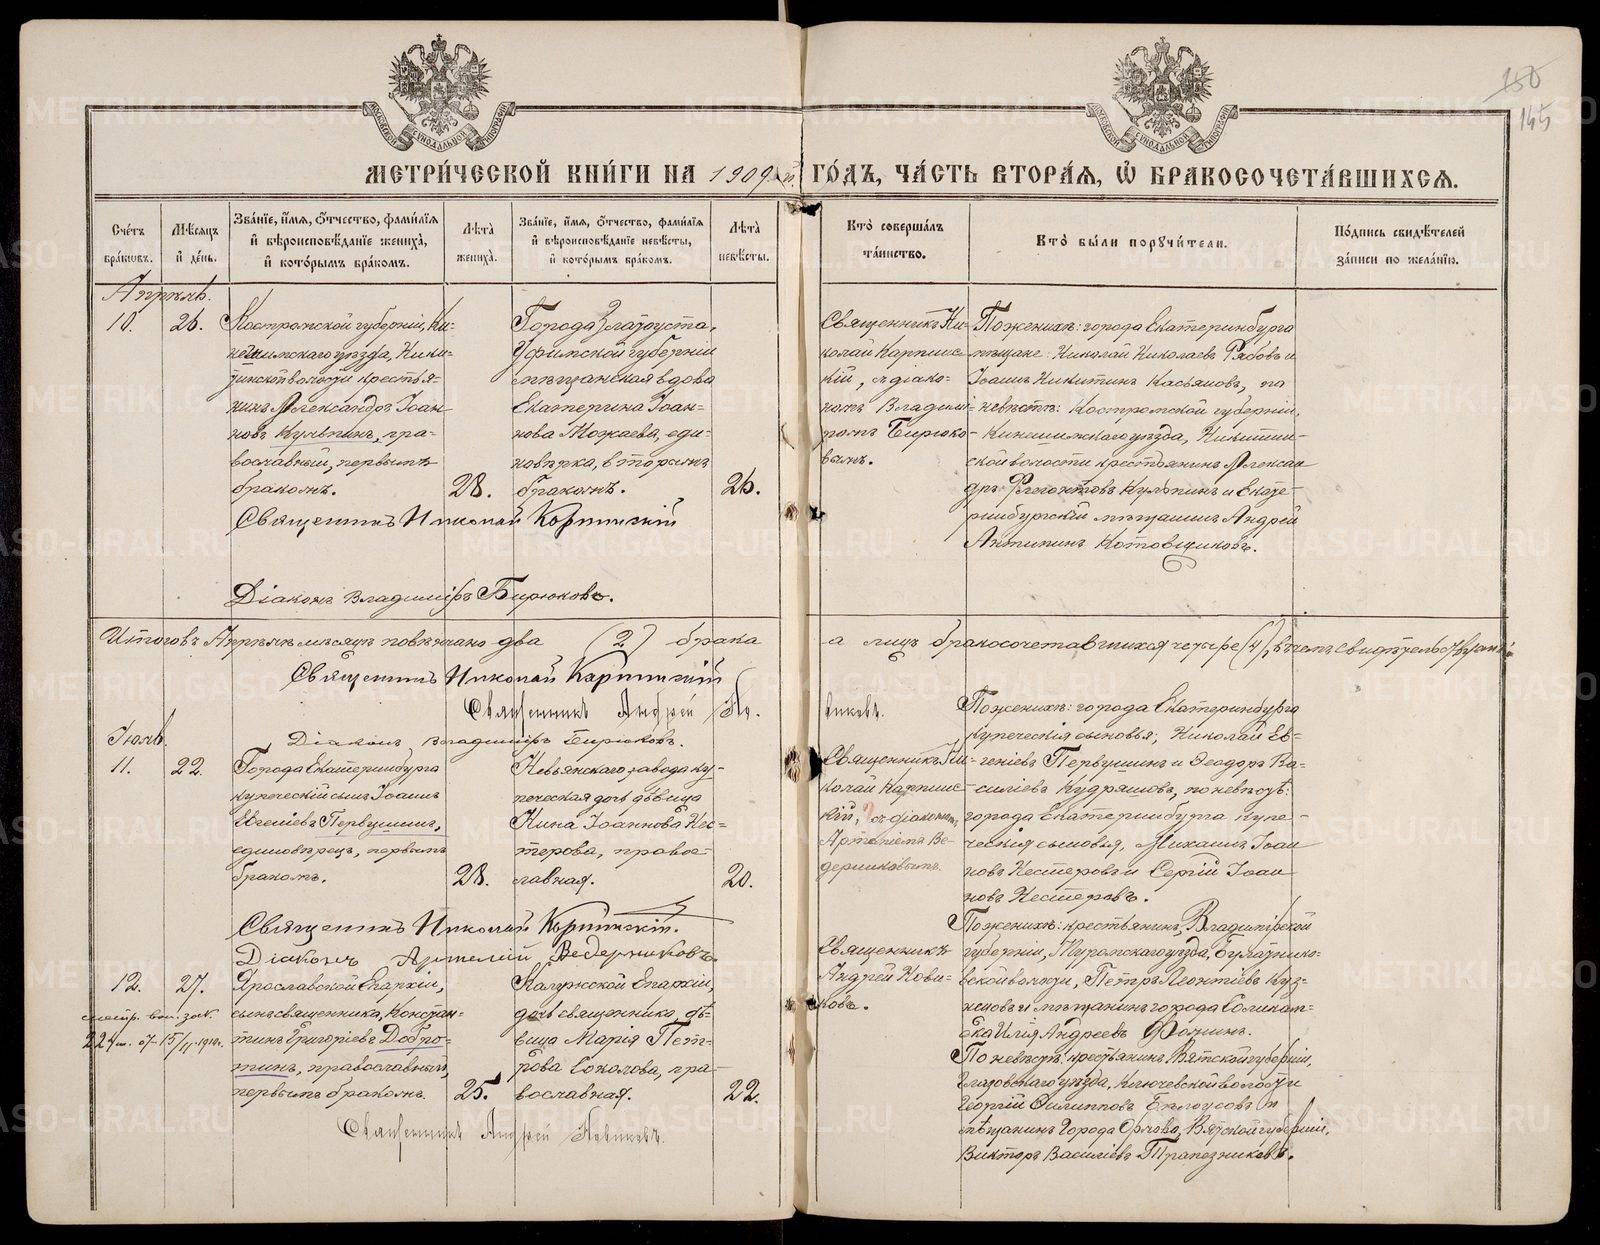 150
145
МЕТРИЧЕСКОЙ КНИГИ НА 1909й ГОДЪ, ЧАСТЬ ВТОРАЯ, Ѡ БРАКОСОЧЕТАВШИХСЯ.
Счетъ браковъ.
Мѣсяцъ и день.
Званіе, имя, отчество, фамилія
и вѣроисповѣданіе жениха,
и которымъ бракомъ.
Лѣта
жениха.
Званіе, имя, отчество, фамилія
и вѣроисповѣданіе невѣсты,
и которымъ бракомъ.
Лѣта
невѣсты.
Кто совершалъ
таинство.
Кто были поручители.
Подпись свидѣтелей
записи по желанію.
Апрѣль.
10.
26.
Костромской губерніи, Ки-
нешимскаго уѣзда, Ники-
тинской волости крестья-
нинъ Александръ Іоан-
новъ Кульпинъ, пра-
вославный, первымъ
бракомъ.
28.
Города Златоуста,
Уфимской губерніи
мѣщанская вдова
Екатерина Іоан-
нова Можаева, еди-
новѣрка, вторымъ
бракомъ.
26.
Священникъ Ни-
колай Карпинс-
кій, съ діако-
номъ Владимі-
ромъ Бирюко-
вымъ.
По женихѣ: города Екатеринбурга
мѣщане: Николай Николаевъ Рябовъ и
Іоаннъ Никитинъ Касьяновъ, по
невѣстѣ: Костромской губерніи,
Кинешимскаго уѣзда, Никитин-
ской волости крестьянинъ Алексан
дръ Флегонтовъ Кульпинъ и Екате-
ринбургскій мѣщанинъ Андрей
Антипинъ Котовщиковъ.
Священникъ Николай Карпинскій
Діаконъ Владиміръ Бирюковъ.
Итого въ Апрѣлѣ мѣсяцѣ повѣнчано два (2) брака
а лицъ бракосочетавшихся четыре (4), въ чемъ свидѣтельствуемъ:
Священникъ Николай Карпинскій
Священникъ Андрей Но.
виковъ.
Діаконъ Владиміръ Бирюковъ.
Іюль.
11.
22.
Города Екатеринбурга
купеческій сынъ Іоаннъ
Евгеніевъ Первушинъ,
единовѣрецъ, первымъ
бракомъ.
28.
Невьянскаго завода ку-
печеская дочь дѣвица
Нина Іоаннова Нес-
терова, правос-
лавная.
20.
Священникъ Ни-
колай Карпинс-
кій, съ діакономъ
Артеміемъ Ве-
дерниковымъ.
По женихѣ: города Екатеринбурга
купеческія сыновья; Николай Ев-
геніевъ Первушинъ и Ѳеодоръ Ва-
силіевъ Кудряшовъ, по невѣстѣ:
города Екатеринбурга купе-
ческія сыновья, Михаилъ Іоан
новъ Нестеровъ и Сергій Іоан
новъ Нестеровъ.
Священникъ Николай Карпинскій.
Діаконъ Артемій Ведерниковъ.
12.
27.
22 15/II 1910г.
Ярославской Епархіи,
сынъ священника, Констан-
тинъ Григоріевъ Добро-
тинъ, православный,
первымъ бракомъ.
25.
Калужской Епархіи,
дочь священника, дѣ-
вица Марія Пет-
рова Соколова, пра-
вославная.
22.
Священникъ
Андрей Нови-
ковъ.
По женихѣ: крестьянинъ, Владимірской
губерніи, Муромскаго уѣзда, Булатнико-
вской волости, Петръ Леонтіевъ Куз-
нецовъ и мѣщанинъ города Соликам-
ска Илія Андреевъ Ѳоминъ.
По невѣстѣ: крестьянинъ Вятской губерніи,
Глазовскаго уѣзда, Ключевской волости
Георгій Филипповъ Бѣлоусовъ и
мѣщанинъ города Орлова, Вятской губерніи,
Викторъ Василіевъ Трапезниковъ.
Священникъ Андрей Новиковъ.